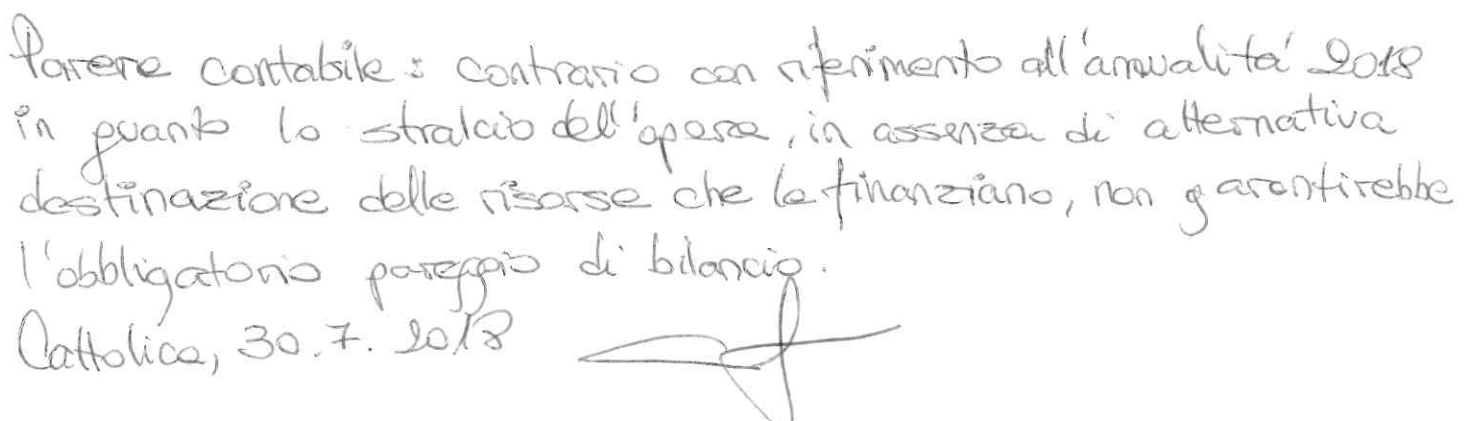 Parere contabile: contrario con riferimento all'annualità 2018
in quanto lo stralcio dell'opera, in assenza di alternativa
destinazione delle risorse che la finanziano, non garantirebbe
l'obbligatorio pareggio di bilancio.
Cattolica, 30.7.2018